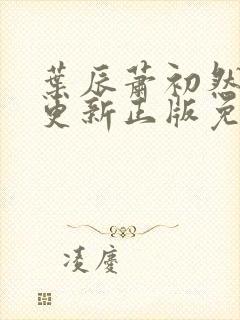 葉辰蕭初然
更新正版免
凌慶